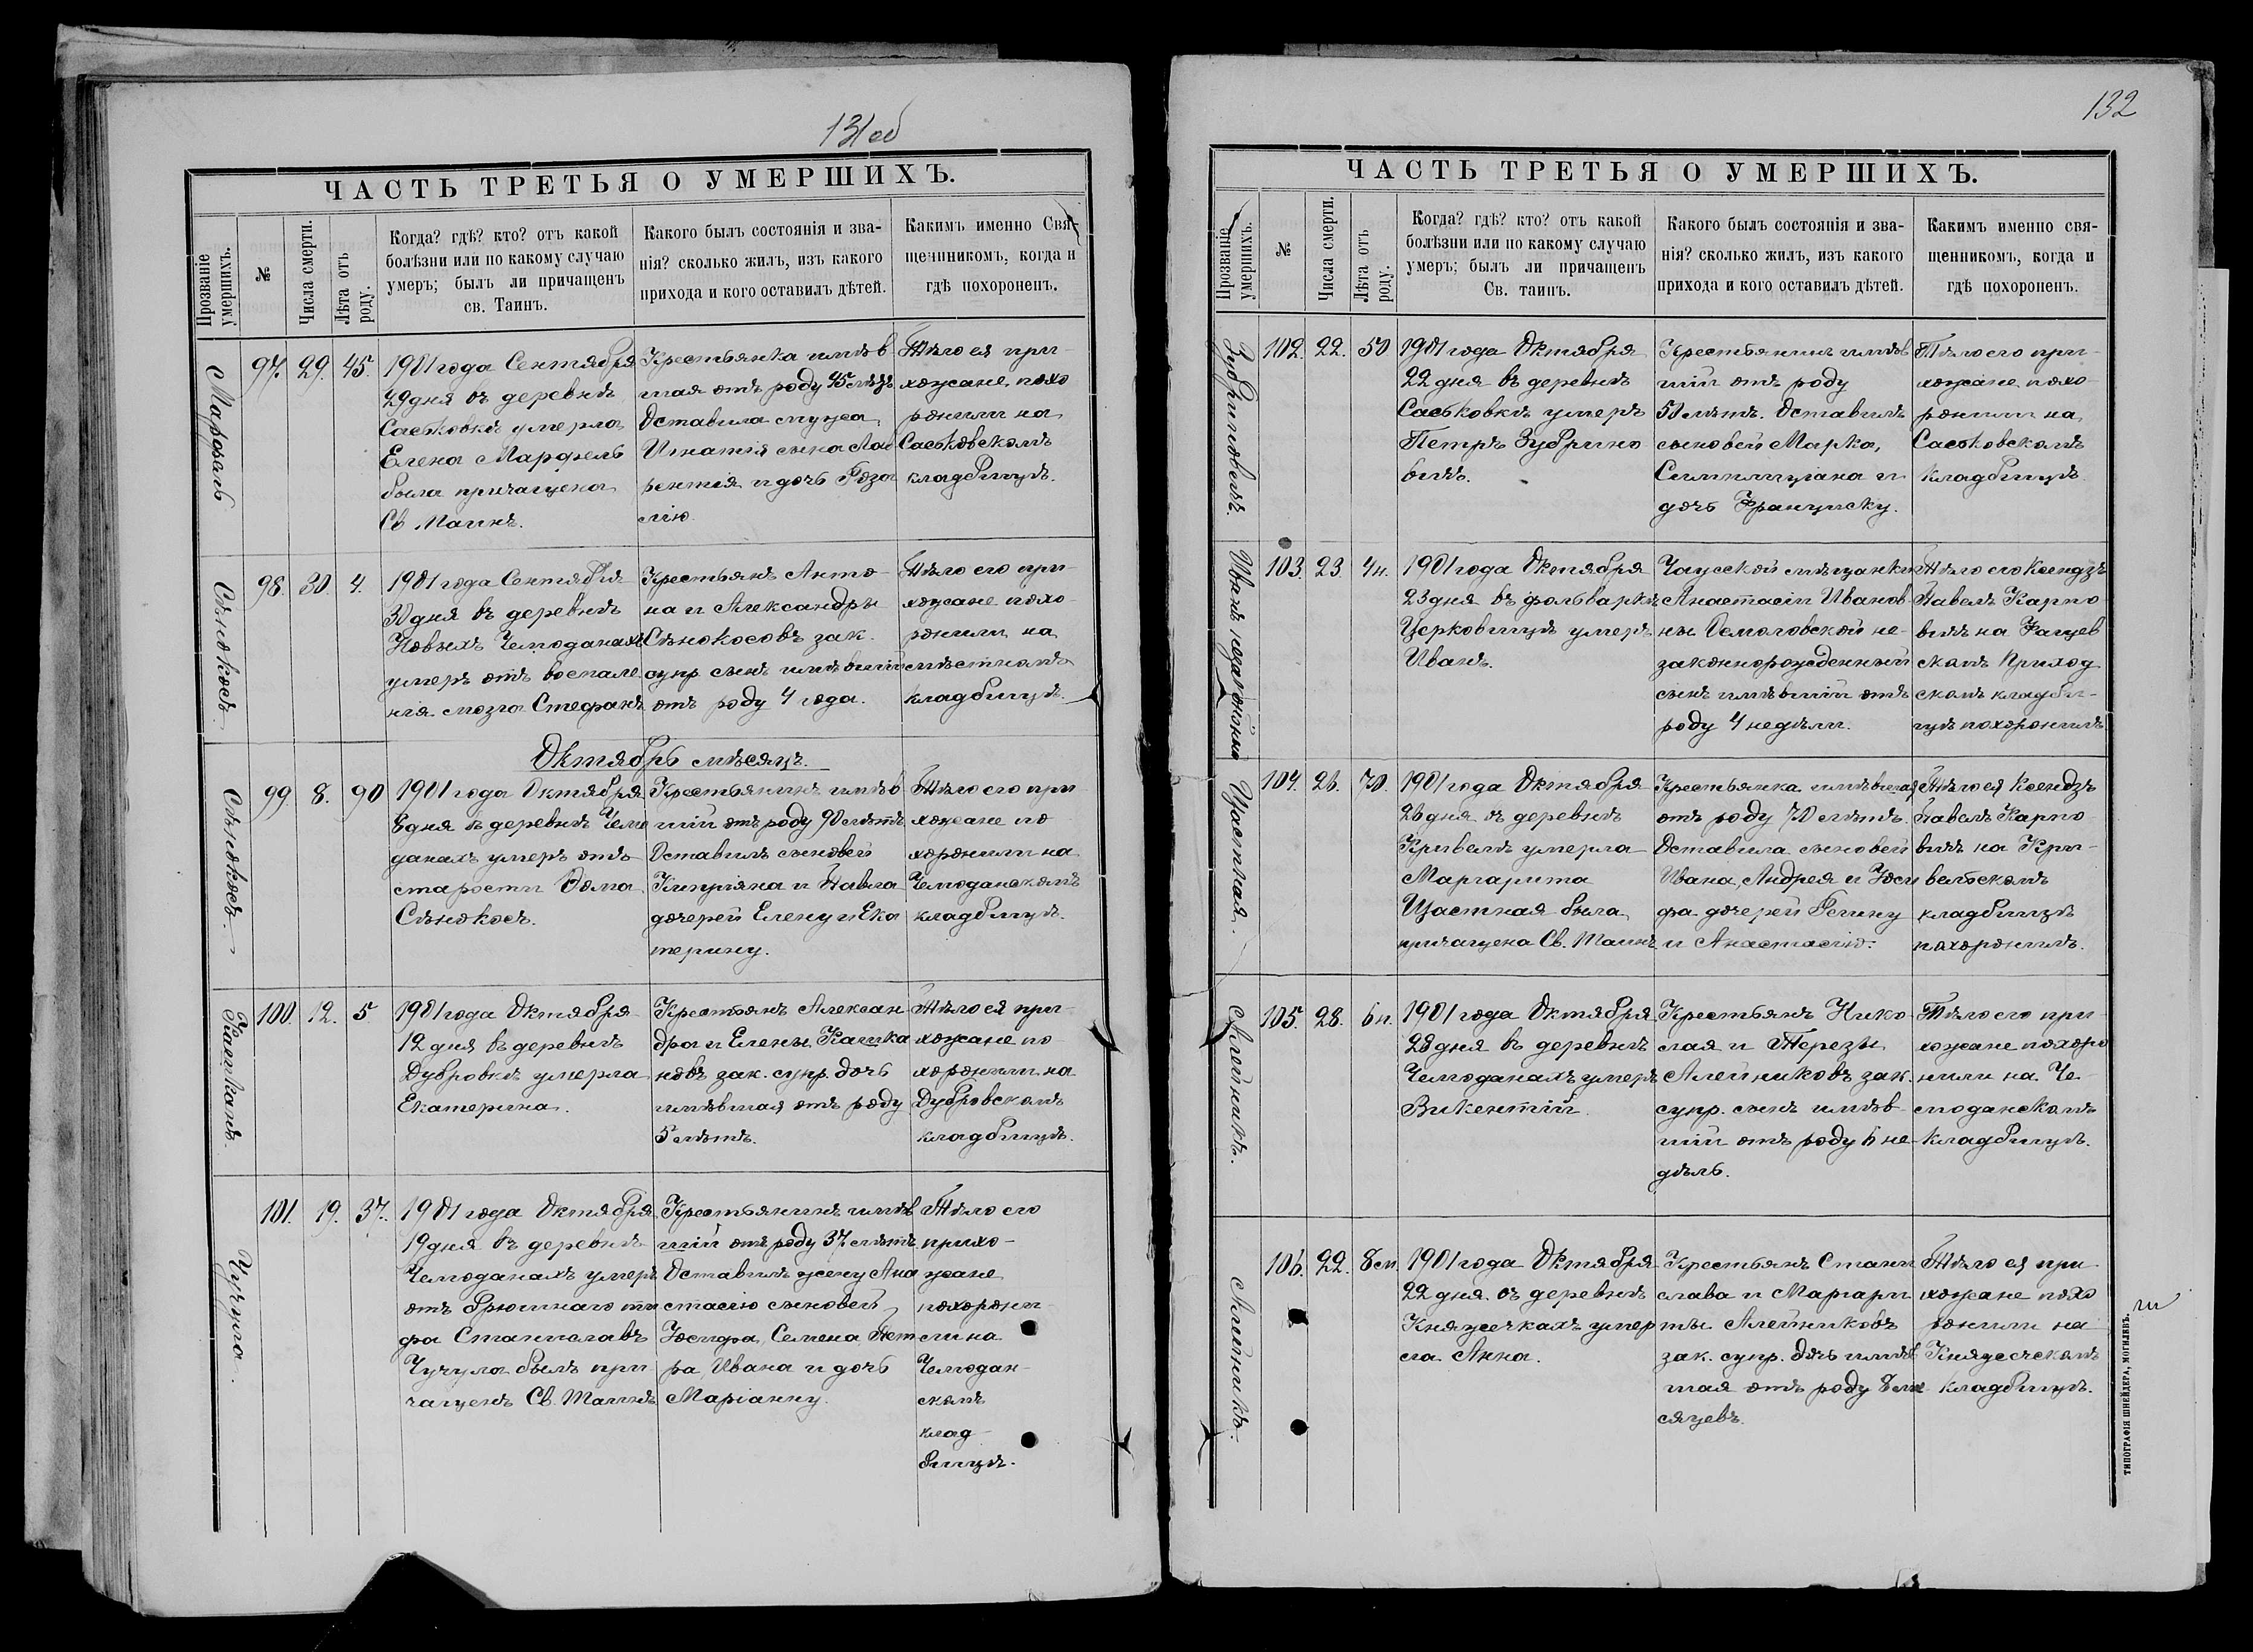 131об
ЧАСТЬ ТРЕТЬЯ О УМЕРШИХЪ.
Прозваніе умершихъ.
№
Числа смерти.
Лѣта отъ роду.
Когда? гдѣ? кто? отъ какой
болѣзни или по какому случаю
умеръ; былъ ли причащенъ
св. Таинъ.
Какого былъ состоянія и зва-
нія? сколько жилъ, изъ какого
прихода и кого оставилъ дѣтей.
Какимъ именно Свя-
щенникомъ, когда и
гдѣ похороненъ.
Марфель
97. 29. 45.
1901 года Сентября
29 дня въ деревнѣ
Саськовкѣ умерла
Елена Марфель
была причащена
Св. Таинъ.
Крестьянка имѣв
шая отъ роду 45 лѣтъ
Оставила мужа
Игнатія сына Лав
рентія и дочь Роза
лію.
Тѣло ея при-
хожане похо
ронили на
Саськовскомъ
кладбищѣ.
Сѣнокосъ
98. 30. 4.
1901 года Сентября
30 дня въ деревнѣ
Новыхъ Чемоданахъ
умеръ отъ воспале
нія мозга Стефанъ
Крестьянъ Анто
на и Александры
Сѣнокосовъ зак.
супр. сынъ имѣвшій
отъ роду 4 года.
Тѣло его при-
хожане похо-
ронили на
мѣстномъ
кладбищѣ.
Октябрь мѣсяцъ.
Сѣнокосъ.
99. 8. 90
1901 года Октября
8 дня въ деревнѣ Чемо
данахъ умеръ отъ
старости Ѳома
Сѣнокосъ.
Крестьянинъ имѣв
шій отъ роду 90 лѣтъ
Оставилъ сыновей
Кипріяна и Павла
дочерей Елену и Ека
терину.
Тѣло его при
хожане по
хоронили на
Чемоданскомъ
кладбищѣ.
Кашканъ.
100. 12. 5
1901 года Октября
12 дня въ деревнѣ
Дубровкѣ умерла
Екатерина.
Крестьянъ Алексан
дра и Елены Кашка
новъ зак. супр. дочь
имѣвшая отъ роду
5 лѣтъ.
Тѣло ея при-
хожане по
хоронили на
Дубровскомъ
кладбищѣ.
Чучула.
101. 19. 37.
1901 года Октября
19 дня въ деревнѣ
Чемоданахъ умеръ
отъ брюшнаго ти
фа Станиславъ
Чучула былъ при
чащенъ Св. Таинъ
Крестьянинъ имѣв
шій отъ роду 37 лѣтъ
Оставилъ жену Ана
стасію сыновей
Іосифа, Семена Пет
ра, Ивана и дочь
Маріанну.
Тѣло его
прихо-
жане
похорони-
ли на
Чемодан-
скомъ
клад-
бищѣ.
132
ЧАСТЬ ТРЕТЬЯ О УМЕРШИХЪ.
Прозваніе умершихъ.
№
Числа смерти.
Лѣта отъ роду.
Когда? гдѣ? кто? отъ какой
болѣзни или по какому случаю
умеръ; былъ ли причащенъ
Св. таинъ.
Какого былъ состоянія и зва-
нія? сколько жилъ, изъ какого
прихода и кого оставилъ дѣтей.
Какимъ именно свя-
щенникомъ, когда и
гдѣ похороненъ.
Зубриновичъ.
102. 22. 50
1901 года Октября
22 дня въ деревнѣ
Саськовкѣ умеръ
Петръ Зубрино
вичъ.
Крестьянинъ имѣв
шій отъ роду
50 лѣтъ. Оставилъ
сыновей Марка,
Симплиціана и
дочь Франциску.
Тѣло его при-
хожане похо-
ронили на
Саськовскомъ
кладбищѣ.
Иванъ незаконный
103. 23. 4н.
1901 года Октября
23 дня въ фольваркѣ
Церковищѣ умеръ
Иванъ.
Чаусской мѣщанки
Анастасіи Иванов
ны Осмоловской не-
законнорожденный
сынъ имѣвшій отъ
роду 4 недѣли.
Тѣло его Ксендзъ
Павелъ Карпо
вичъ на Фащев
скомъ приход
скомъ кладби-
щѣ похоронилъ
Щастная.
104. 26. 70.
1901 года Октября
26 дня въ деревнѣ
Кривелѣ умерла
Маргарита
Щастная была
причащена Св. Таинъ
Крестьянка имѣвшая
отъ роду 70 лѣтъ.
Оставила сыновей
Ивана, Андрея и Іоси
фа дочерей Регину
и Анастасію.
Тѣло ея Ксендзъ
Павелъ Карпо
вичъ на Кри-
вельскомъ
кладбищѣ
похоронилъ.
Алейникъ.
105. 28. 6н.
1901 года Октября
28 дня въ деревнѣ
Чемоданахъ умеръ
Викентій.
Крестьянъ Нико
лая и Терезы
Алейниковъ зак.
супр. сынъ имѣв-
шій отъ роду 6 не-
дѣль.
Тѣло его при-
хожане похоро
нили на Че-
моданскомъ
кладбищѣ.
Алейникъ.
106. 22. 8м.
1901 года Октября
22 дня въ деревнѣ
Княжечкахъ умер
ла Анна.
Крестьянъ Стани
слава и Маргари
ты Алейниковъ
зак. супр. дочь имѣв
шая отъ роду 8 мѣ
сяцевъ.
Тѣло ея при
хожане похо
ронили на
Княжескомъ
кладбищѣ.
ТИПОГРАФІЯ ШНЕЙДЕРА, МОГИЛЕВЪ.